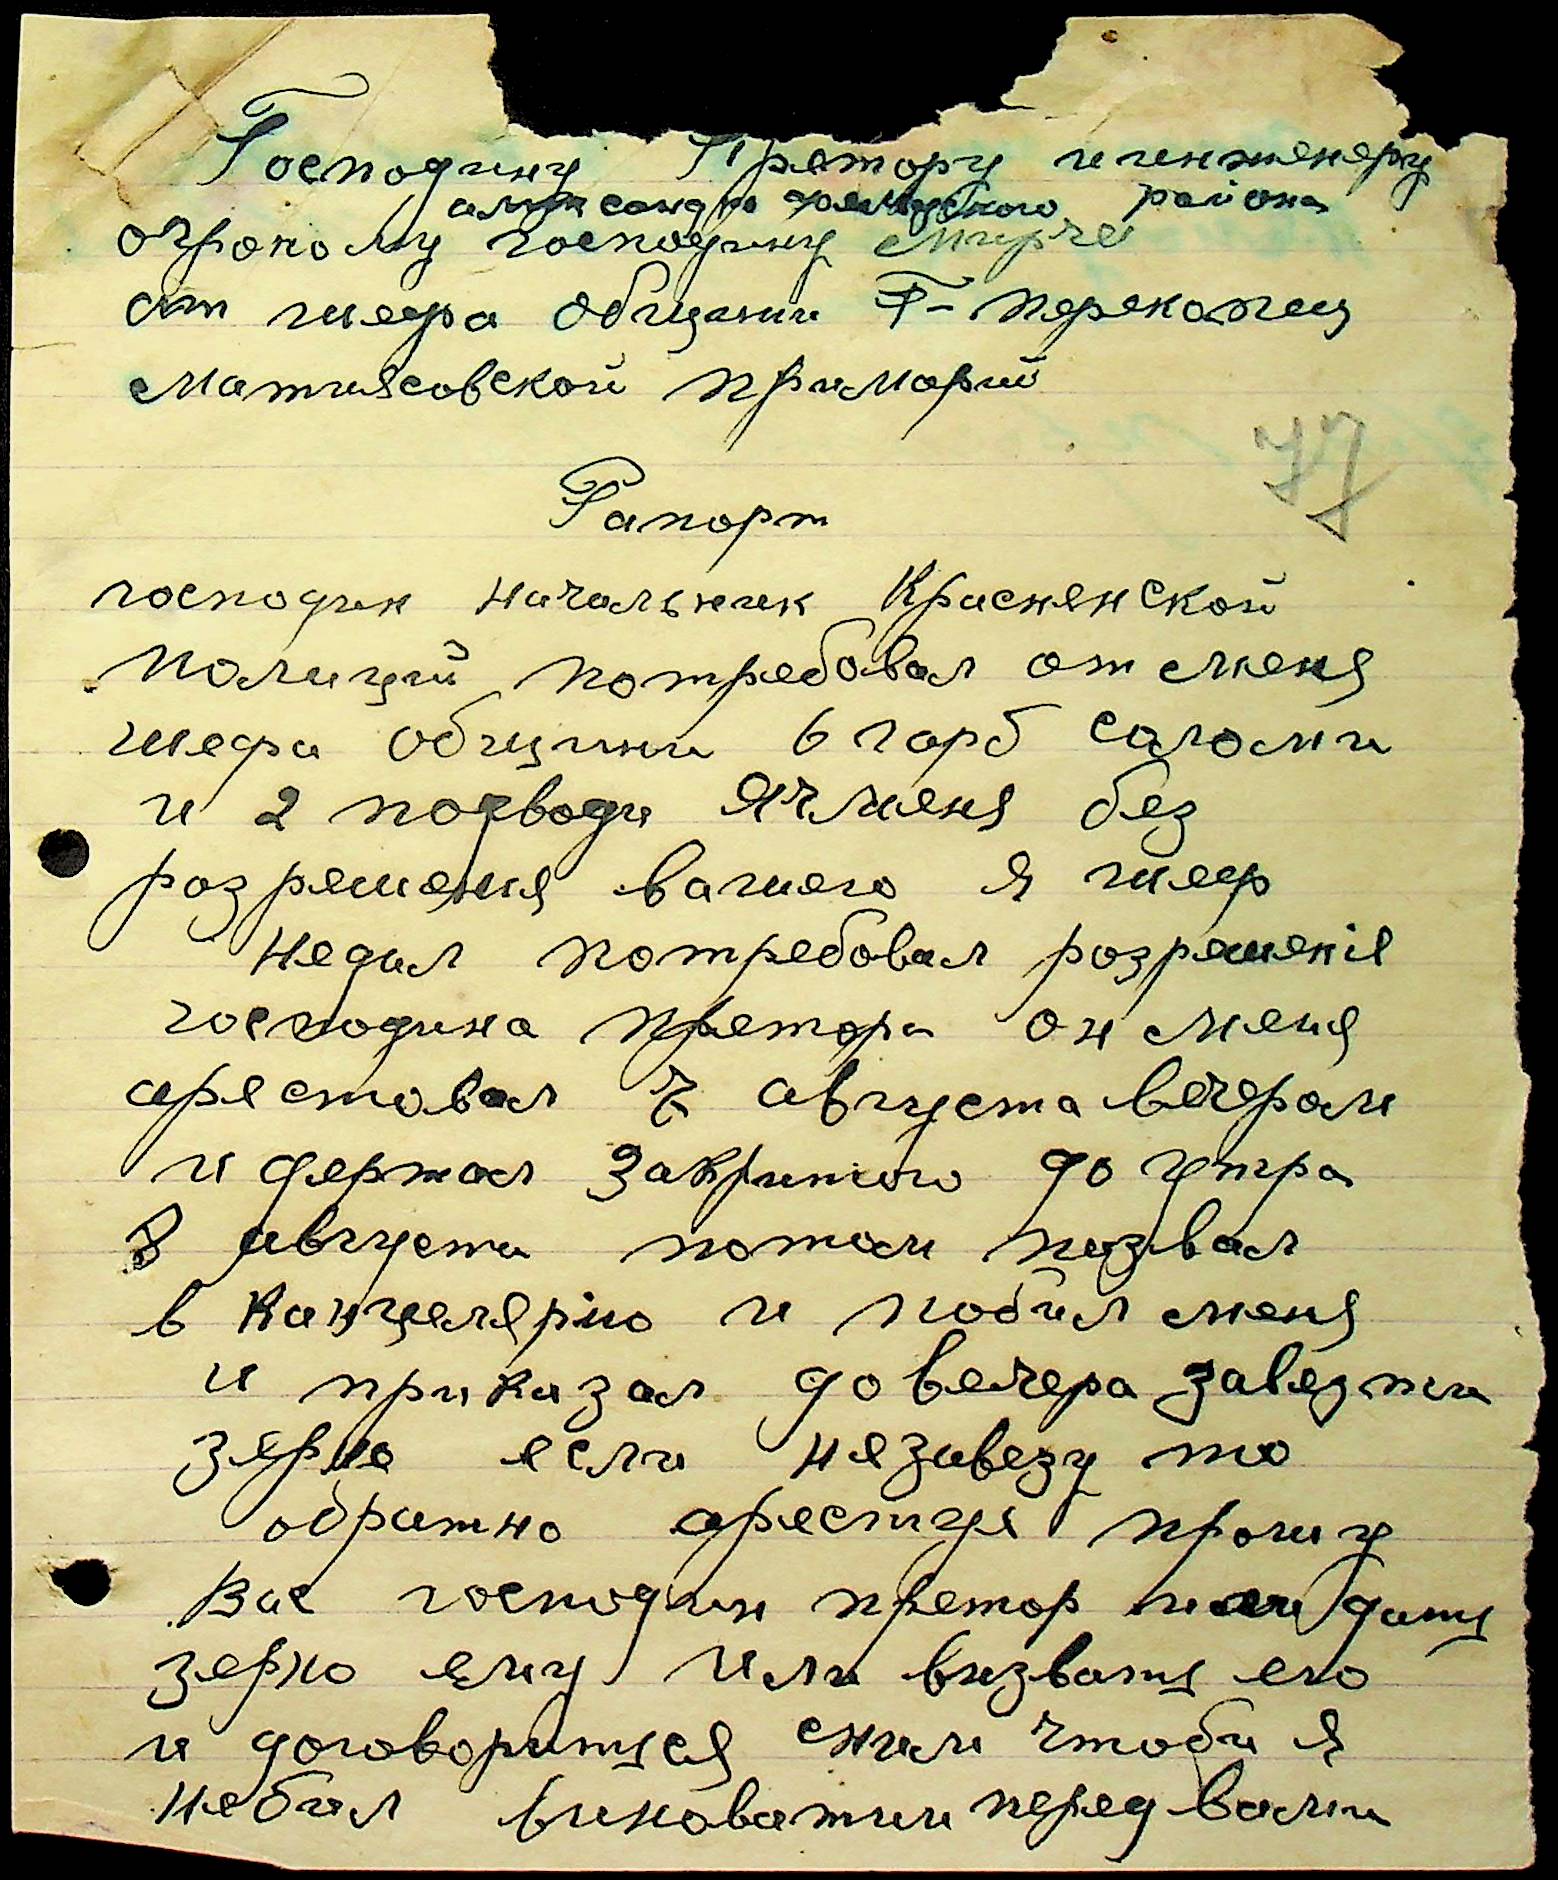 Господину Претору и инженеру
александрфельдского района
огроному господину Мирче
от шефа общини Т-Перекопец
Матиясовской примарий
77
Рапорт
господин начальник Красненской
полиций потребовал от меня
шефа общини 6 гарб саломи
и 2 подводи ячменя без
розрешения вашего я шеф
недал потребовал розрешенія
господина претора он меня
арестовал 7 августа вечером
и держал закритого до утра
8 августа потом позвал
в канцелярію и побил меня
и приказал до вечера завезти
зерно если незавезу то
обратно арестуе прошу
Вас господин претор или дать
зерно ему или визвать его
и договориться сним чтоби я
небил виноватим перед вами